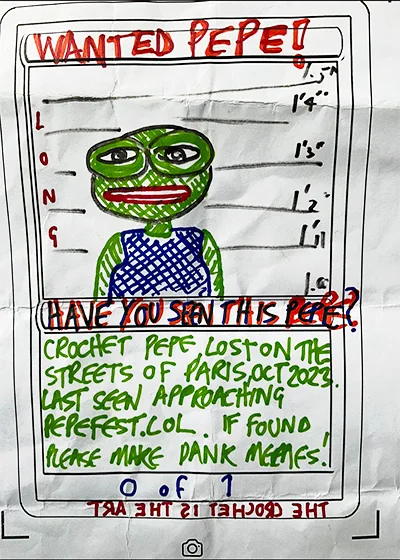 WANTED PEPE!
1'4"
1'3"
1'2"
1'1"
LONG
HAVE YOU SEEN THIS PEPE?
CROCHET PEPE, LOST ON THE
STREETS OF PARIS, OCT 2023.
LAST SEEN APPROACHING
PEPEFEST.LOL. IF FOUND
PLEASE MAKE DANK MEMES!
0 of 1
THE CROCHET IS THE ART